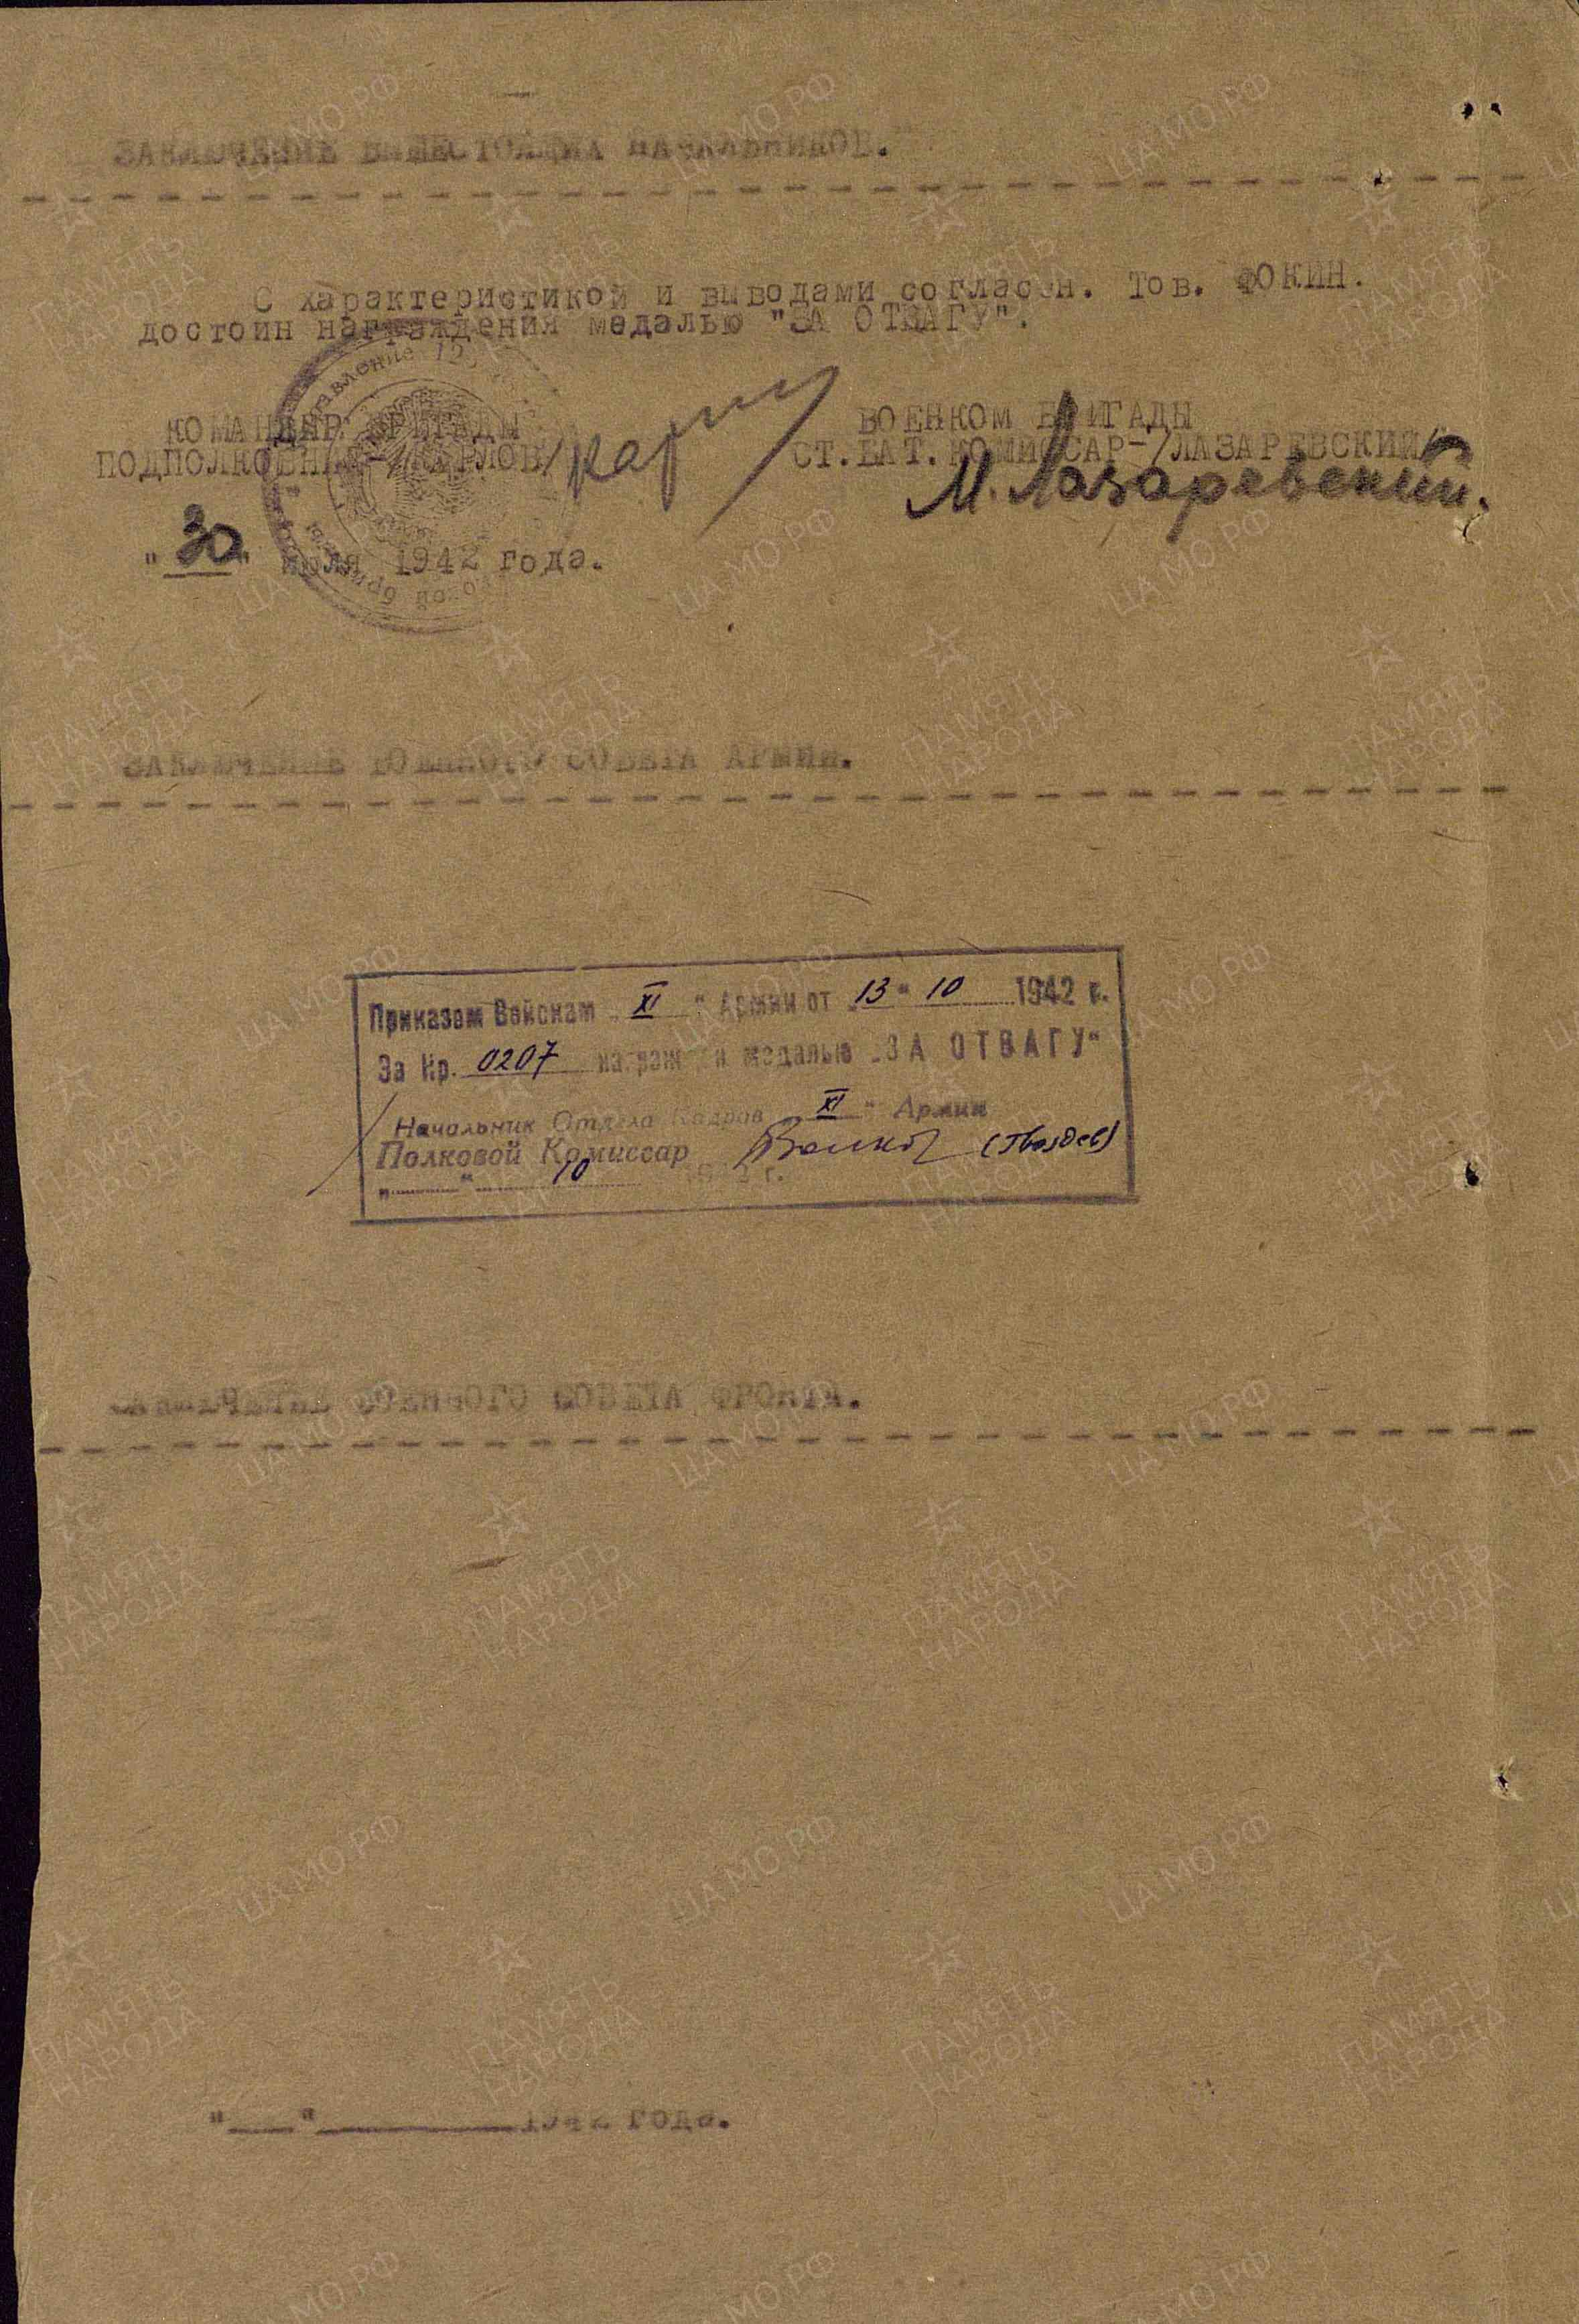 ЗАКЛЮЧЕНИЕ ВЫШЕСТОЯЩИХ НАЧАЛЬНИКОВ.
С характеристикой и выводами согласен. Тов. ФОКИН.
достоин награждения медалью "ЗА ОТВАГУ".
КОМАНДИР БРИГАДЫ
ПОДПОЛКОВНИК-/КАРЛОВ/
ВОЕНКОМ БРИГАДЫ
СТ.БАТ.КОМИССАР-/ЛАЗАРЕВСКИЙ/
М. Лазаревский.
"30" июля 1942 года.
ЗАКЛЮЧЕНИЕ ВОЕННОГО СОВЕТА АРМИИ.
Приказом Войскам „XI" Армии от „13" 10 1942 г.
За Нр. 0207 награжден медалью „ЗА ОТВАГУ"
Начальник Отдела Кадров „XI" Армии
Полковой Комиссар (Гвоздев)
„ " 10 1942 г.
ЗАКЛЮЧЕНИЕ ВОЕННОГО СОВЕТА ФРОНТА.
" " 1942 года.
ПАМЯТЬ НАРОДА
ЦА МО РФ